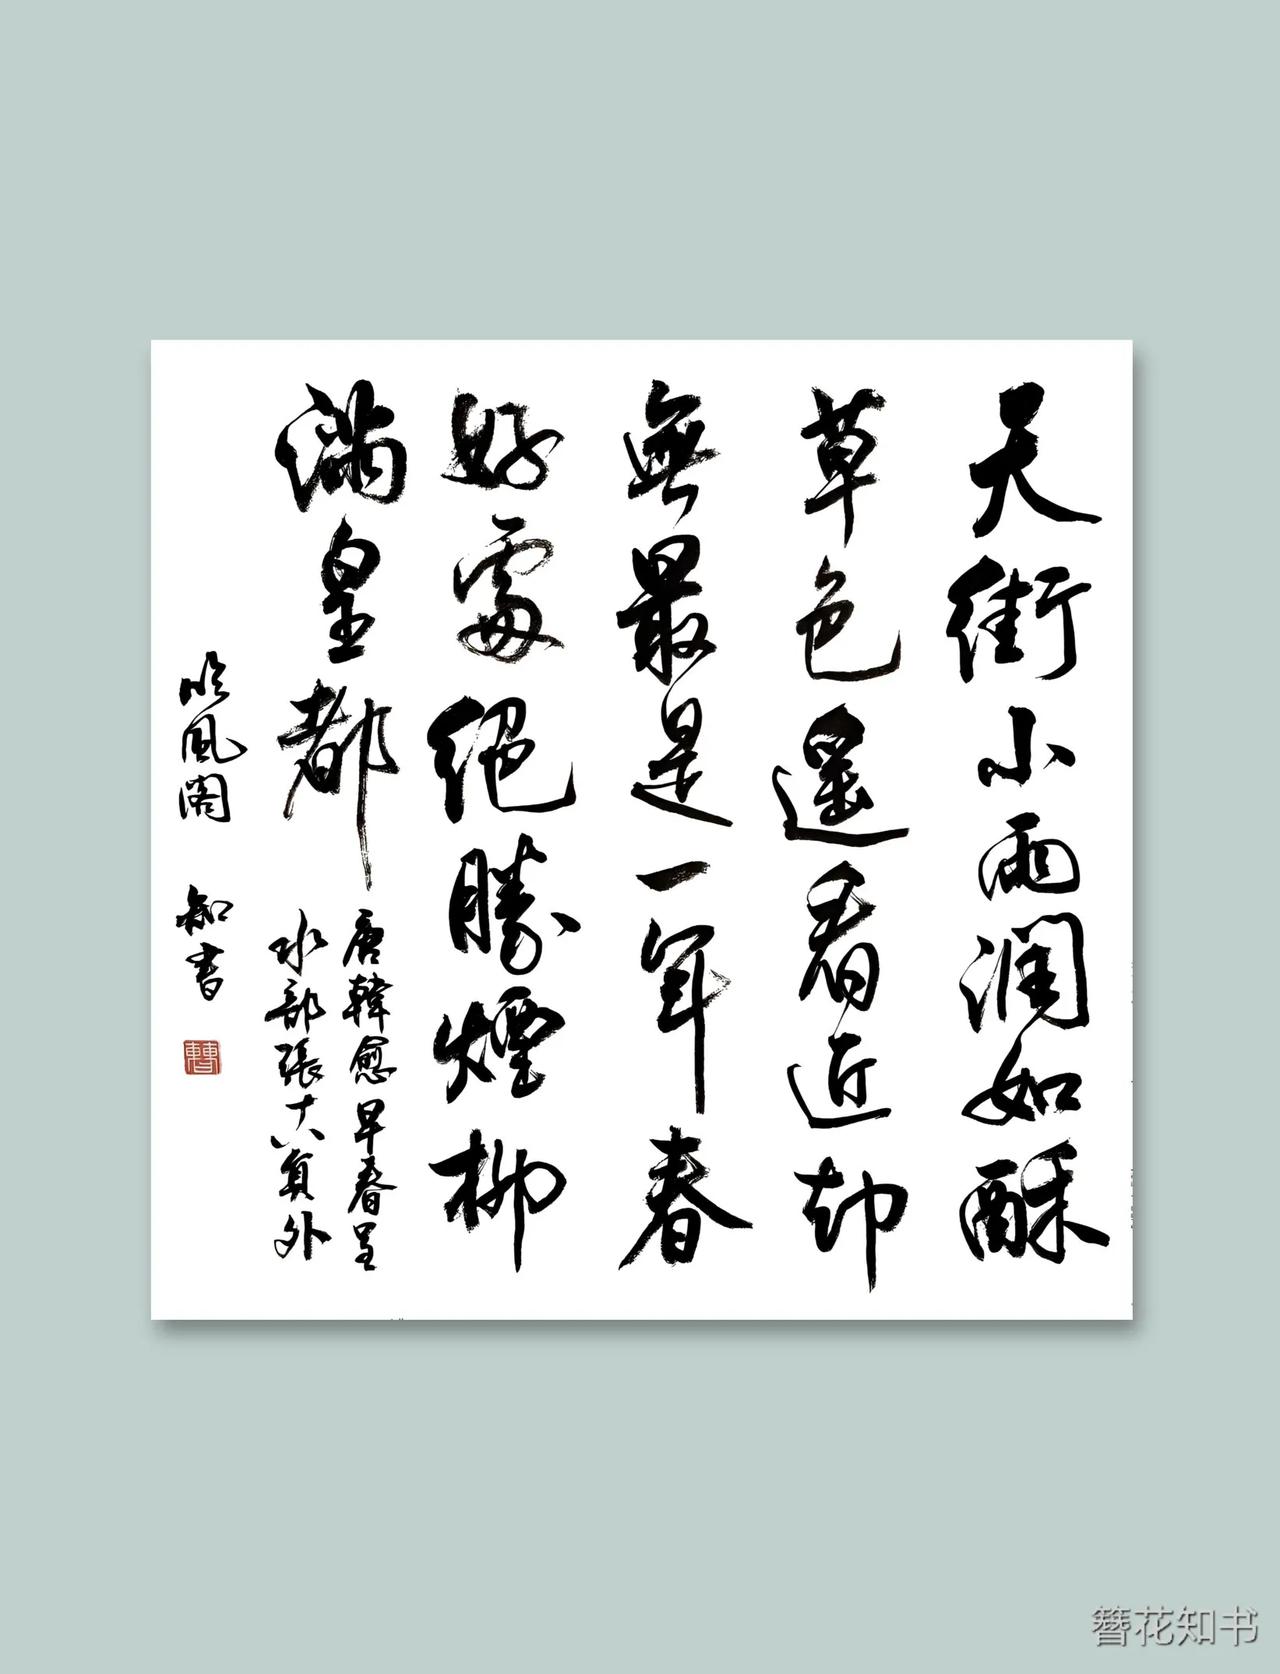 天街小雨潤如酥
草色遥看近却
無最是一年春
好處絕勝煙柳
滿皇都
唐韓愈早春呈
水部張十八員外
吹風閣 知書
簪花知书